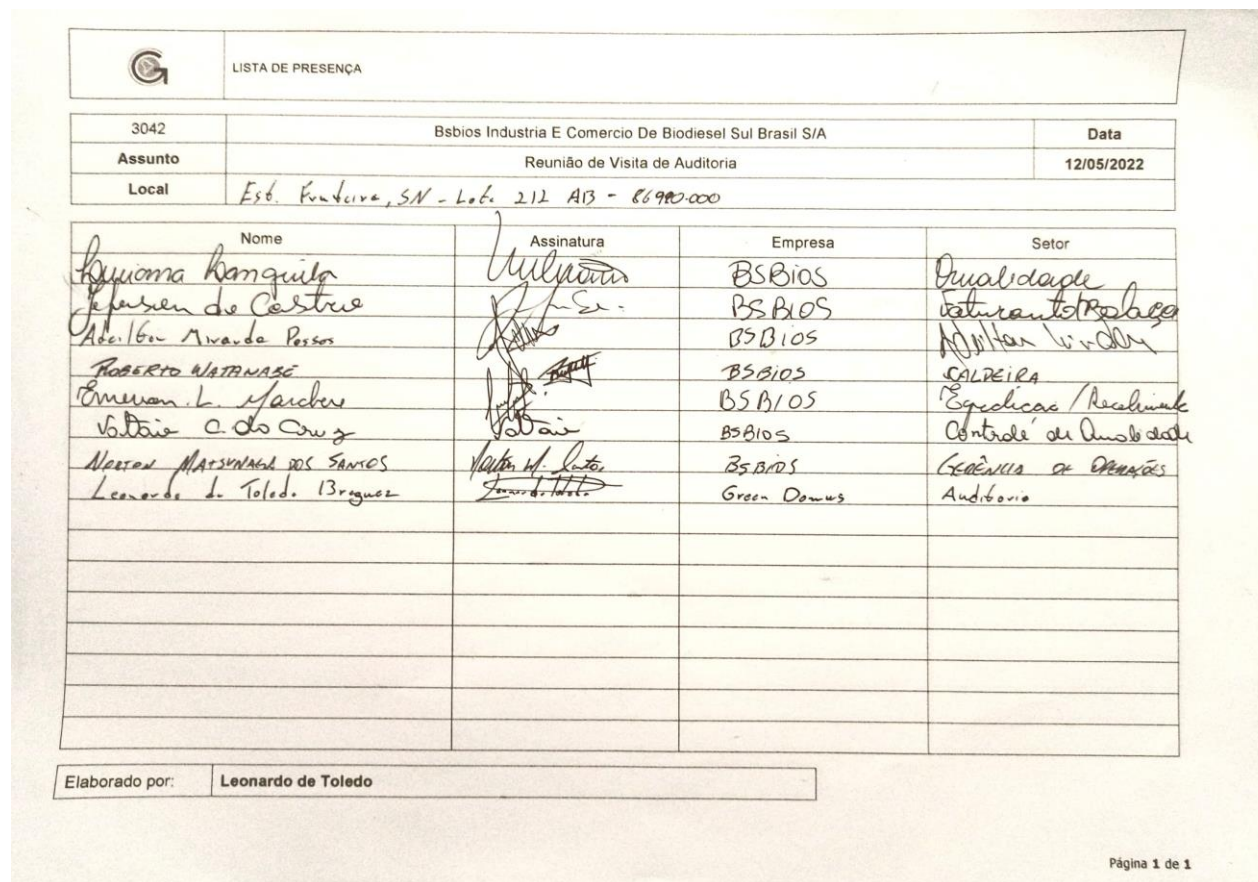 LISTA DE PRESENÇA
3042 Bsbios Industria E Comercio De Biodiesel Sul Brasil S/A Data
Assunto Reunião de Visita de Auditoria 12/05/2022
Local Est. Fruteira, SN - Lote 212 AB - 86990.000
Nome Assinatura Empresa Setor
BSBios Qualidade
Jeferson de Castro BSBIOS
Adailton Miranda Passos BSBios
ROBERTO WATANABE BSBIOS CALDEIRA
Emerson L. BSBIOS Expedicao / Recebimento
Voltaire C. da Cruz BSBIOS Controle de Qualidade
NORTON MATSUNAGA DOS SANTOS Norton M. Santos BSBIOS GERÊNCIA DE OPERAÇÕES
Leonardo de Toledo Green Domus Auditoria
Elaborado por: Leonardo de Toledo
Página 1 de 1